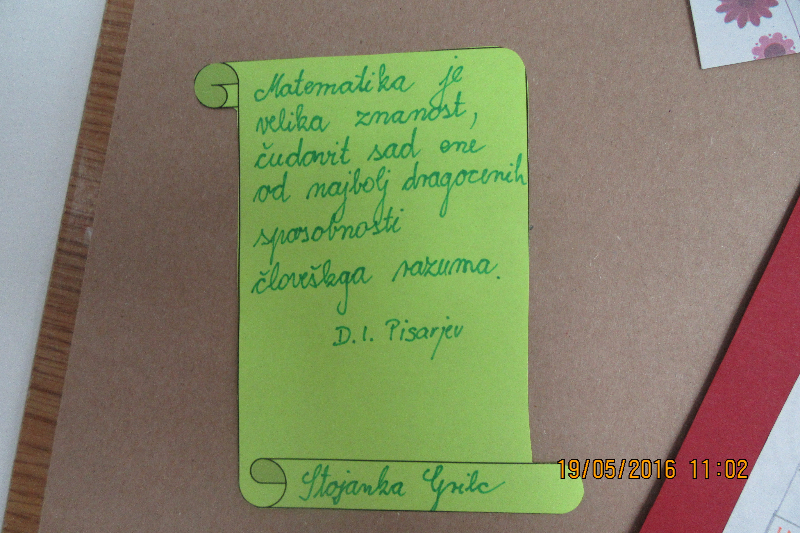 Matematika je
velika znanost,
čudovit sad ene
od najbolj dragocenih
sposobnosti
človeškga razuma.
D. I. Pisarjev
Stojanka Grilc
19/05/2016 11:02